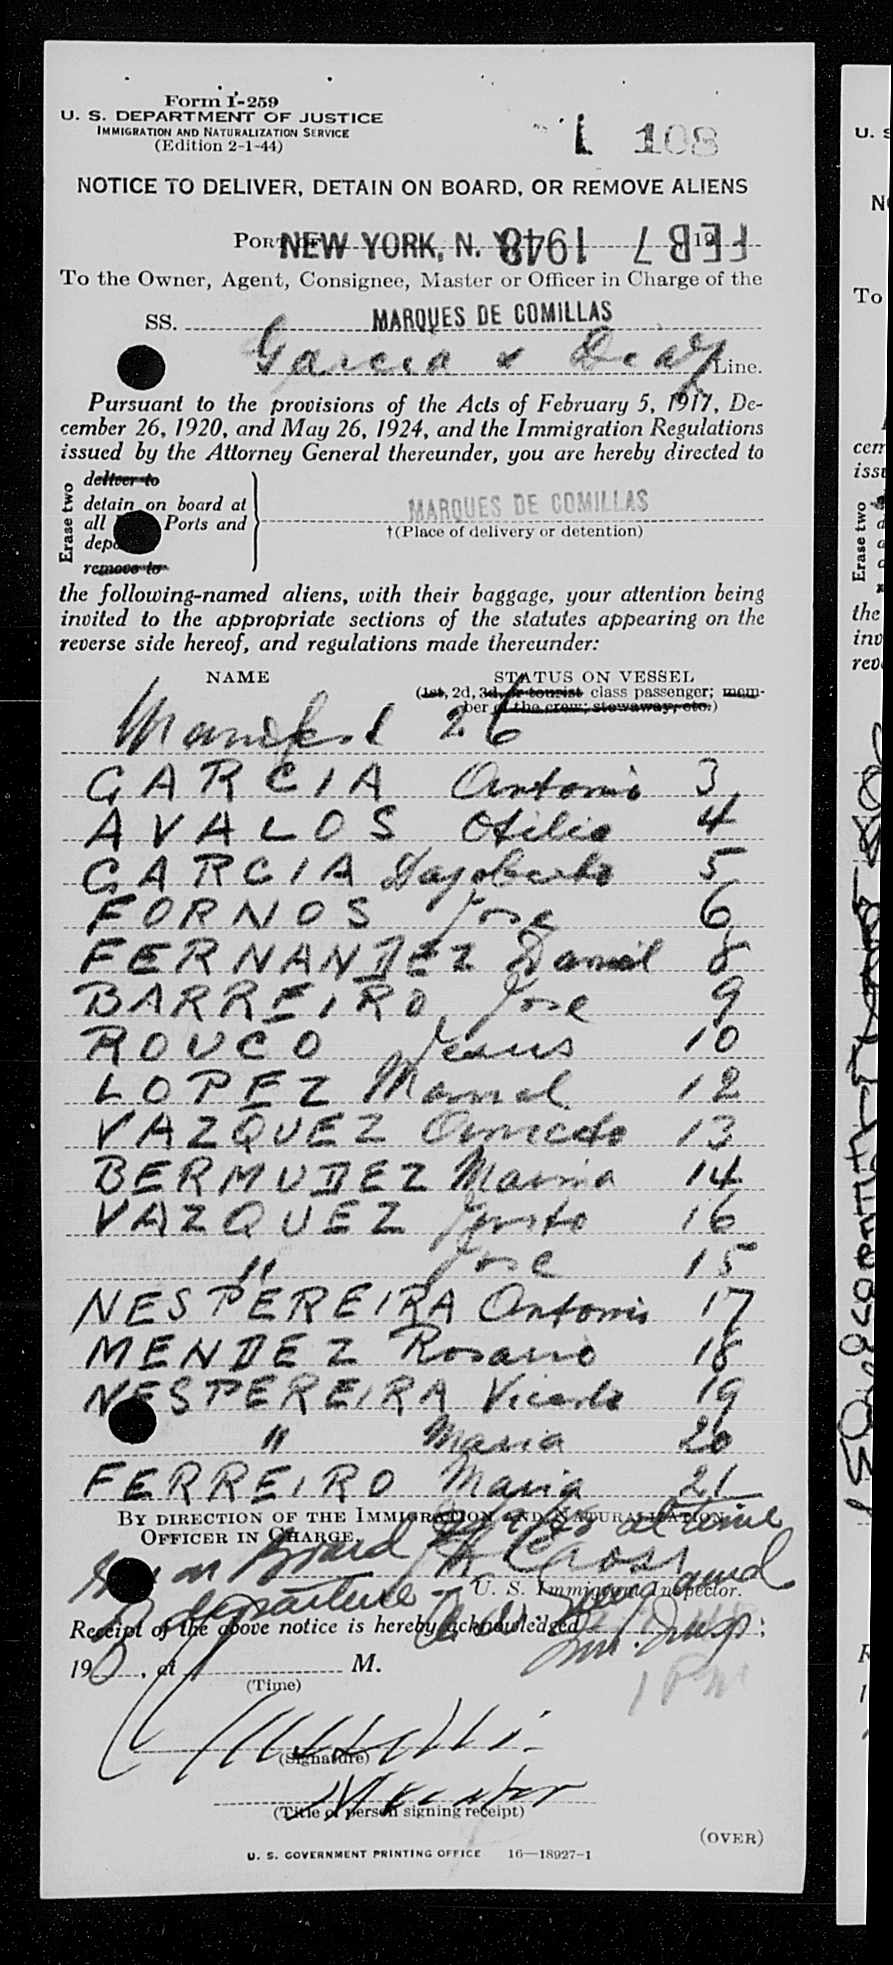 Form I-259
U. S. DEPARTMENT OF JUSTICE
IMMIGRATION AND NATURALIZATION SERVICE
(Edition 2-1-44)
1 108
NOTICE TO DELIVER, DETAIN ON BOARD, OR REMOVE ALIENS
PORT OF NEW YORK, N. Y. FEB 7 1948 19
To the Owner, Agent, Consignee, Master or Officer in Charge of the
SS. MARQUES DE COMILLAS
Garcia & Diaz Line.
Pursuant to the provisions of the Acts of February 5, 1917, De-
cember 26, 1920, and May 26, 1924, and the Immigration Regulations
issued by the Attorney General thereunder, you are hereby directed to
Erase two
deliver to
detain on board at
all Ports and
MARQUES DE COMILLAS
†(Place of delivery or detention)
remove to
the following-named aliens, with their baggage, your attention being
invited to the appropriate sections of the statutes appearing on the
reverse side hereof, and regulations made thereunder:
NAME STATUS ON VESSEL
(1st, 2d, 3d, or tourist class passenger; mem-
ber of the crew; stowaway, etc.)
Manifest 26
GARCIA Antonio 3
AVALOS Otilio 4
GARCIA Dagoberto 5
FORNOS Jose 6
FERNANDEZ Daniel 8
BARREIRO Jose 9
ROUCO Jesus 10
LOPEZ Manuel 12
VAZQUEZ 13
BERMUDEZ Maria 14
VAZQUEZ Justo 16
" Jose 15
NESPEREIRA Antonio 17
MENDEZ Rosario 18
NESPEREIRA Vicente 19
" Maria 20
FERREIRO Maria 21
BY DIRECTION OF THE IMMIGRATION AND NATURALIZATION
OFFICER IN CHARGE,
at time
on Board
departure
U. S. Immigrant Inspector.
Receipt of the above notice is hereby acknowledged ;
19 , at M.
1 PM
(Time)
(Signature)
(Title of person signing receipt)
(OVER)
U. S. GOVERNMENT PRINTING OFFICE 16—18927-1